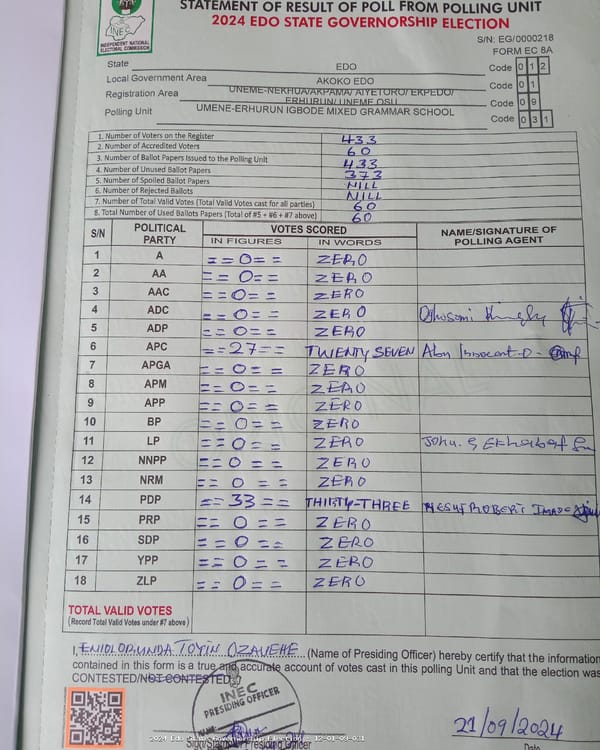 STATEMENT OF RESULT OF POLL FROM POLLING UNIT
2024 EDO STATE GOVERNORSHIP ELECTION
INEC
INDEPENDENT NATIONAL ELECTORAL COMMISSION
S/N: EG/0000218
FORM EC 8A
State EDO Code 0 1 2
Local Government Area AKOKO EDO Code 0 1
Registration Area UNEME-NEKHUA/AKPAMA/ AIYETORO/ EKPEDO/ ERHURUN/ UNEME OSU Code 0 9
Polling Unit UMENE-ERHURUN IGBODE MIXED GRAMMAR SCHOOL Code 0 3 1
1. Number of Voters on the Register 433
2. Number of Accredited Voters 60
3. Number of Ballot Papers Issued to the Polling Unit 433
4. Number of Unused Ballot Papers 373
5. Number of Spoiled Ballot Papers NILL
6. Number of Rejected Ballots NILL
7. Number of Total Valid Votes (Total Valid Votes cast for all parties) 60
8. Total Number of Used Ballots Papers (Total of #5 + #6 + #7 above) 60
S/N POLITICAL PARTY VOTES SCORED NAME/SIGNATURE OF POLLING AGENT
IN FIGURES IN WORDS
1 A ==0== ZERO
2 AA ==0== ZERO
3 AAC ==0== ZERO
4 ADC ==0== ZERO
5 ADP ==0== ZERO
6 APC ==27== TWENTY SEVEN Abu Innocent O-
7 APGA ==0== ZERO
8 APM ==0== ZERO
9 APP ==0== ZERO
10 BP ==0== ZERO
11 LP ==0== ZERO John. S
12 NNPP ==0== ZERO
13 NRM ==0== ZERO
14 PDP ==33== THIRTY-THREE ROBERT
15 PRP ==0== ZERO
16 SDP ==0== ZERO
17 YPP ==0== ZERO
18 ZLP ==0== ZERO
TOTAL VALID VOTES
(Record Total Valid Votes under #7 above)
I, ENIOLORUNDA TOYIN OZAVEHE (Name of Presiding Officer) hereby certify that the information
contained in this form is a true and accurate account of votes cast in this polling Unit and that the election was
CONTESTED/NOT CONTESTED
INEC
PRESIDING OFFICER
21/09/2024
Sign/Stamp of Presiding Officer
Date